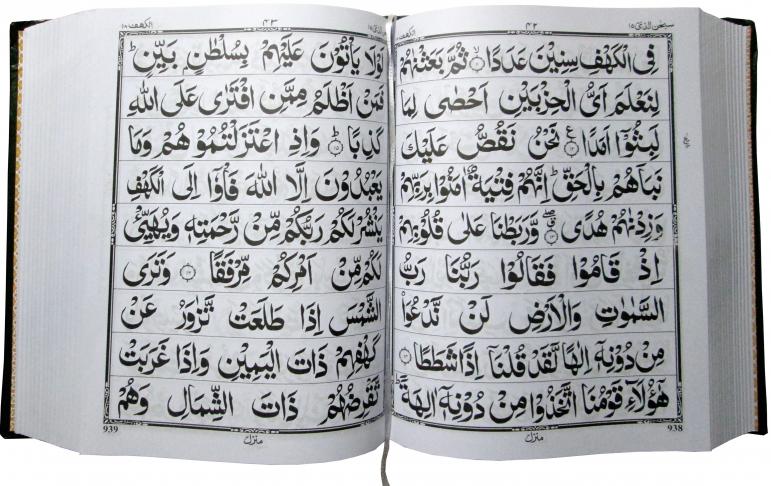 سبحن الذی ١٥
٤٢
الکهف
فِي الْكَهْفِ سِنِيْنَ عَدَدًا ۙ﴿۱۱﴾ ثُمَّ بَعَثْنٰهُمْ
لِنَعْلَمَ اَيُّ الْحِزْبَيْنِ اَحْصٰى لِمَا
لَبِثُوْۤا اَمَدًا ﴿۱۲﴾ نَحْنُ نَقُصُّ عَلَيْكَ
نَبَاَهُمْ بِالْحَقِّ ؕ اِنَّهُمْ فِتْيَةٌ اٰمَنُوْا بِرَبِّهِمْ
وَزِدْنٰهُمْ هُدًى ﴿۱۳﴾ وَّرَبَطْنَا عَلٰى قُلُوْبِهِمْ
اِذْ قَامُوْا فَقَالُوْا رَبُّنَا رَبُّ
السَّمٰوٰتِ وَالْاَرْضِ لَنْ نَّدْعُوَا۟
مِنْ دُوْنِهٖۤ اِلٰهًا لَّقَدْ قُلْنَاۤ اِذًا شَطَطًا ﴿۱۴﴾
هٰۤؤُلَآءِ قَوْمُنَا اتَّخَذُوْا مِنْ دُوْنِهٖۤ اٰلِهَةً ؕ
منزل
938
٤٣
الکهف ١٨
لَوْلَا يَاْتُوْنَ عَلَيْهِمْ بِسُلْطٰنٍۭ بَيِّنٍ ؕ
فَمَنْ اَظْلَمُ مِمَّنِ افْتَرٰى عَلَى اللّٰهِ
كَذِبًا ؕ﴿۱۵﴾ وَاِذِ اعْتَزَلْتُمُوْهُمْ وَمَا
يَعْبُدُوْنَ اِلَّا اللّٰهَ فَاْوٗۤا اِلَى الْكَهْفِ
يَنْشُرْ لَكُمْ رَبُّكُمْ مِّنْ رَّحْمَتِهٖ وَيُهَيِّئْ
لَكُمْ مِّنْ اَمْرِكُمْ مِّرْفَقًا ﴿۱۶﴾ وَتَرَى
الشَّمْسَ اِذَا طَلَعَتْ تَّزٰوَرُ عَنْ
كَهْفِهِمْ ذَاتَ الْيَمِيْنِ وَاِذَا غَرَبَتْ
تَّقْرِضُهُمْ ذَاتَ الشِّمَالِ وَهُمْ
منزل
939